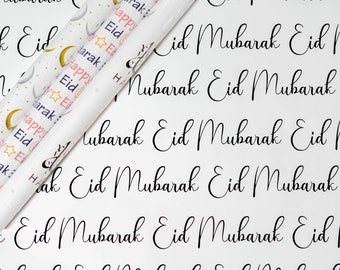 Eid Mubarak Eid
Eid Mubarak
Eid Mubarak Eid
Happy
Eid
Mubarak Eid Mubarak
Eid Mubarak Eid
Eid Mubarak Eid Mubarak
Mubarak Eid Mubarak Eid
Eid Mubarak Eid Mubarak